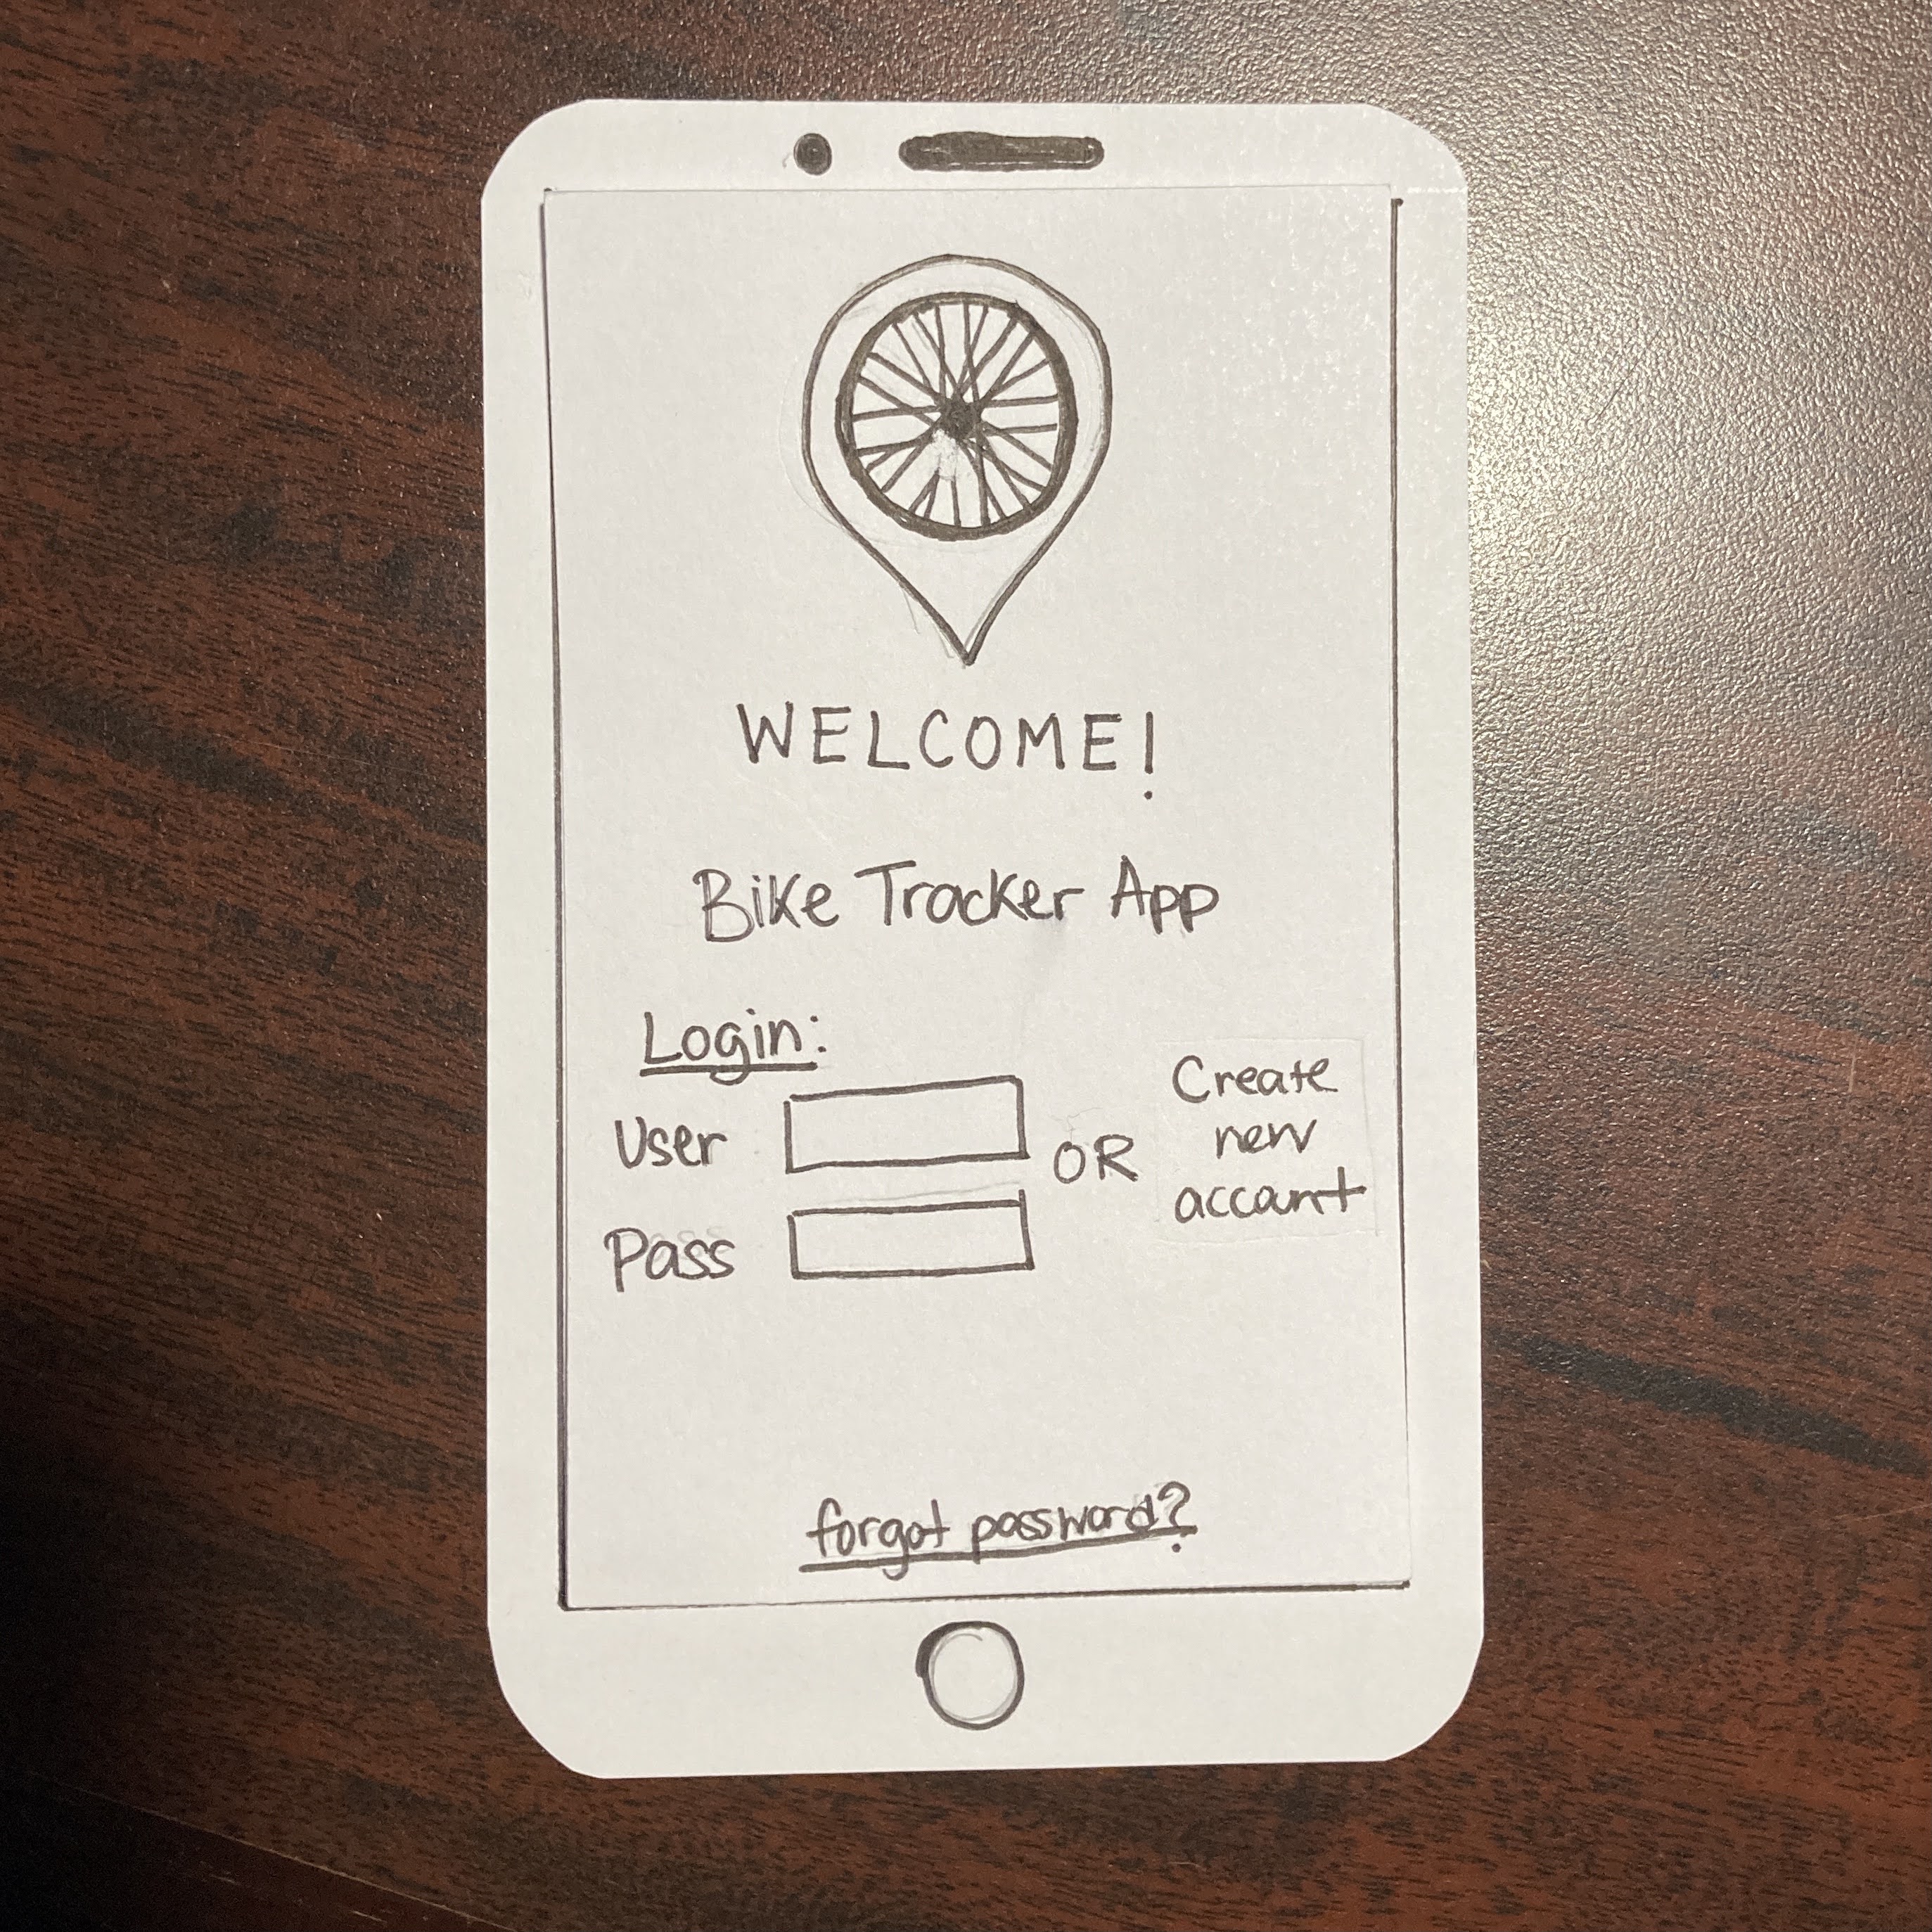 WELCOME!
Bike Tracker App
Login:
User
OR
Create
new
account
Pass
forgot password?